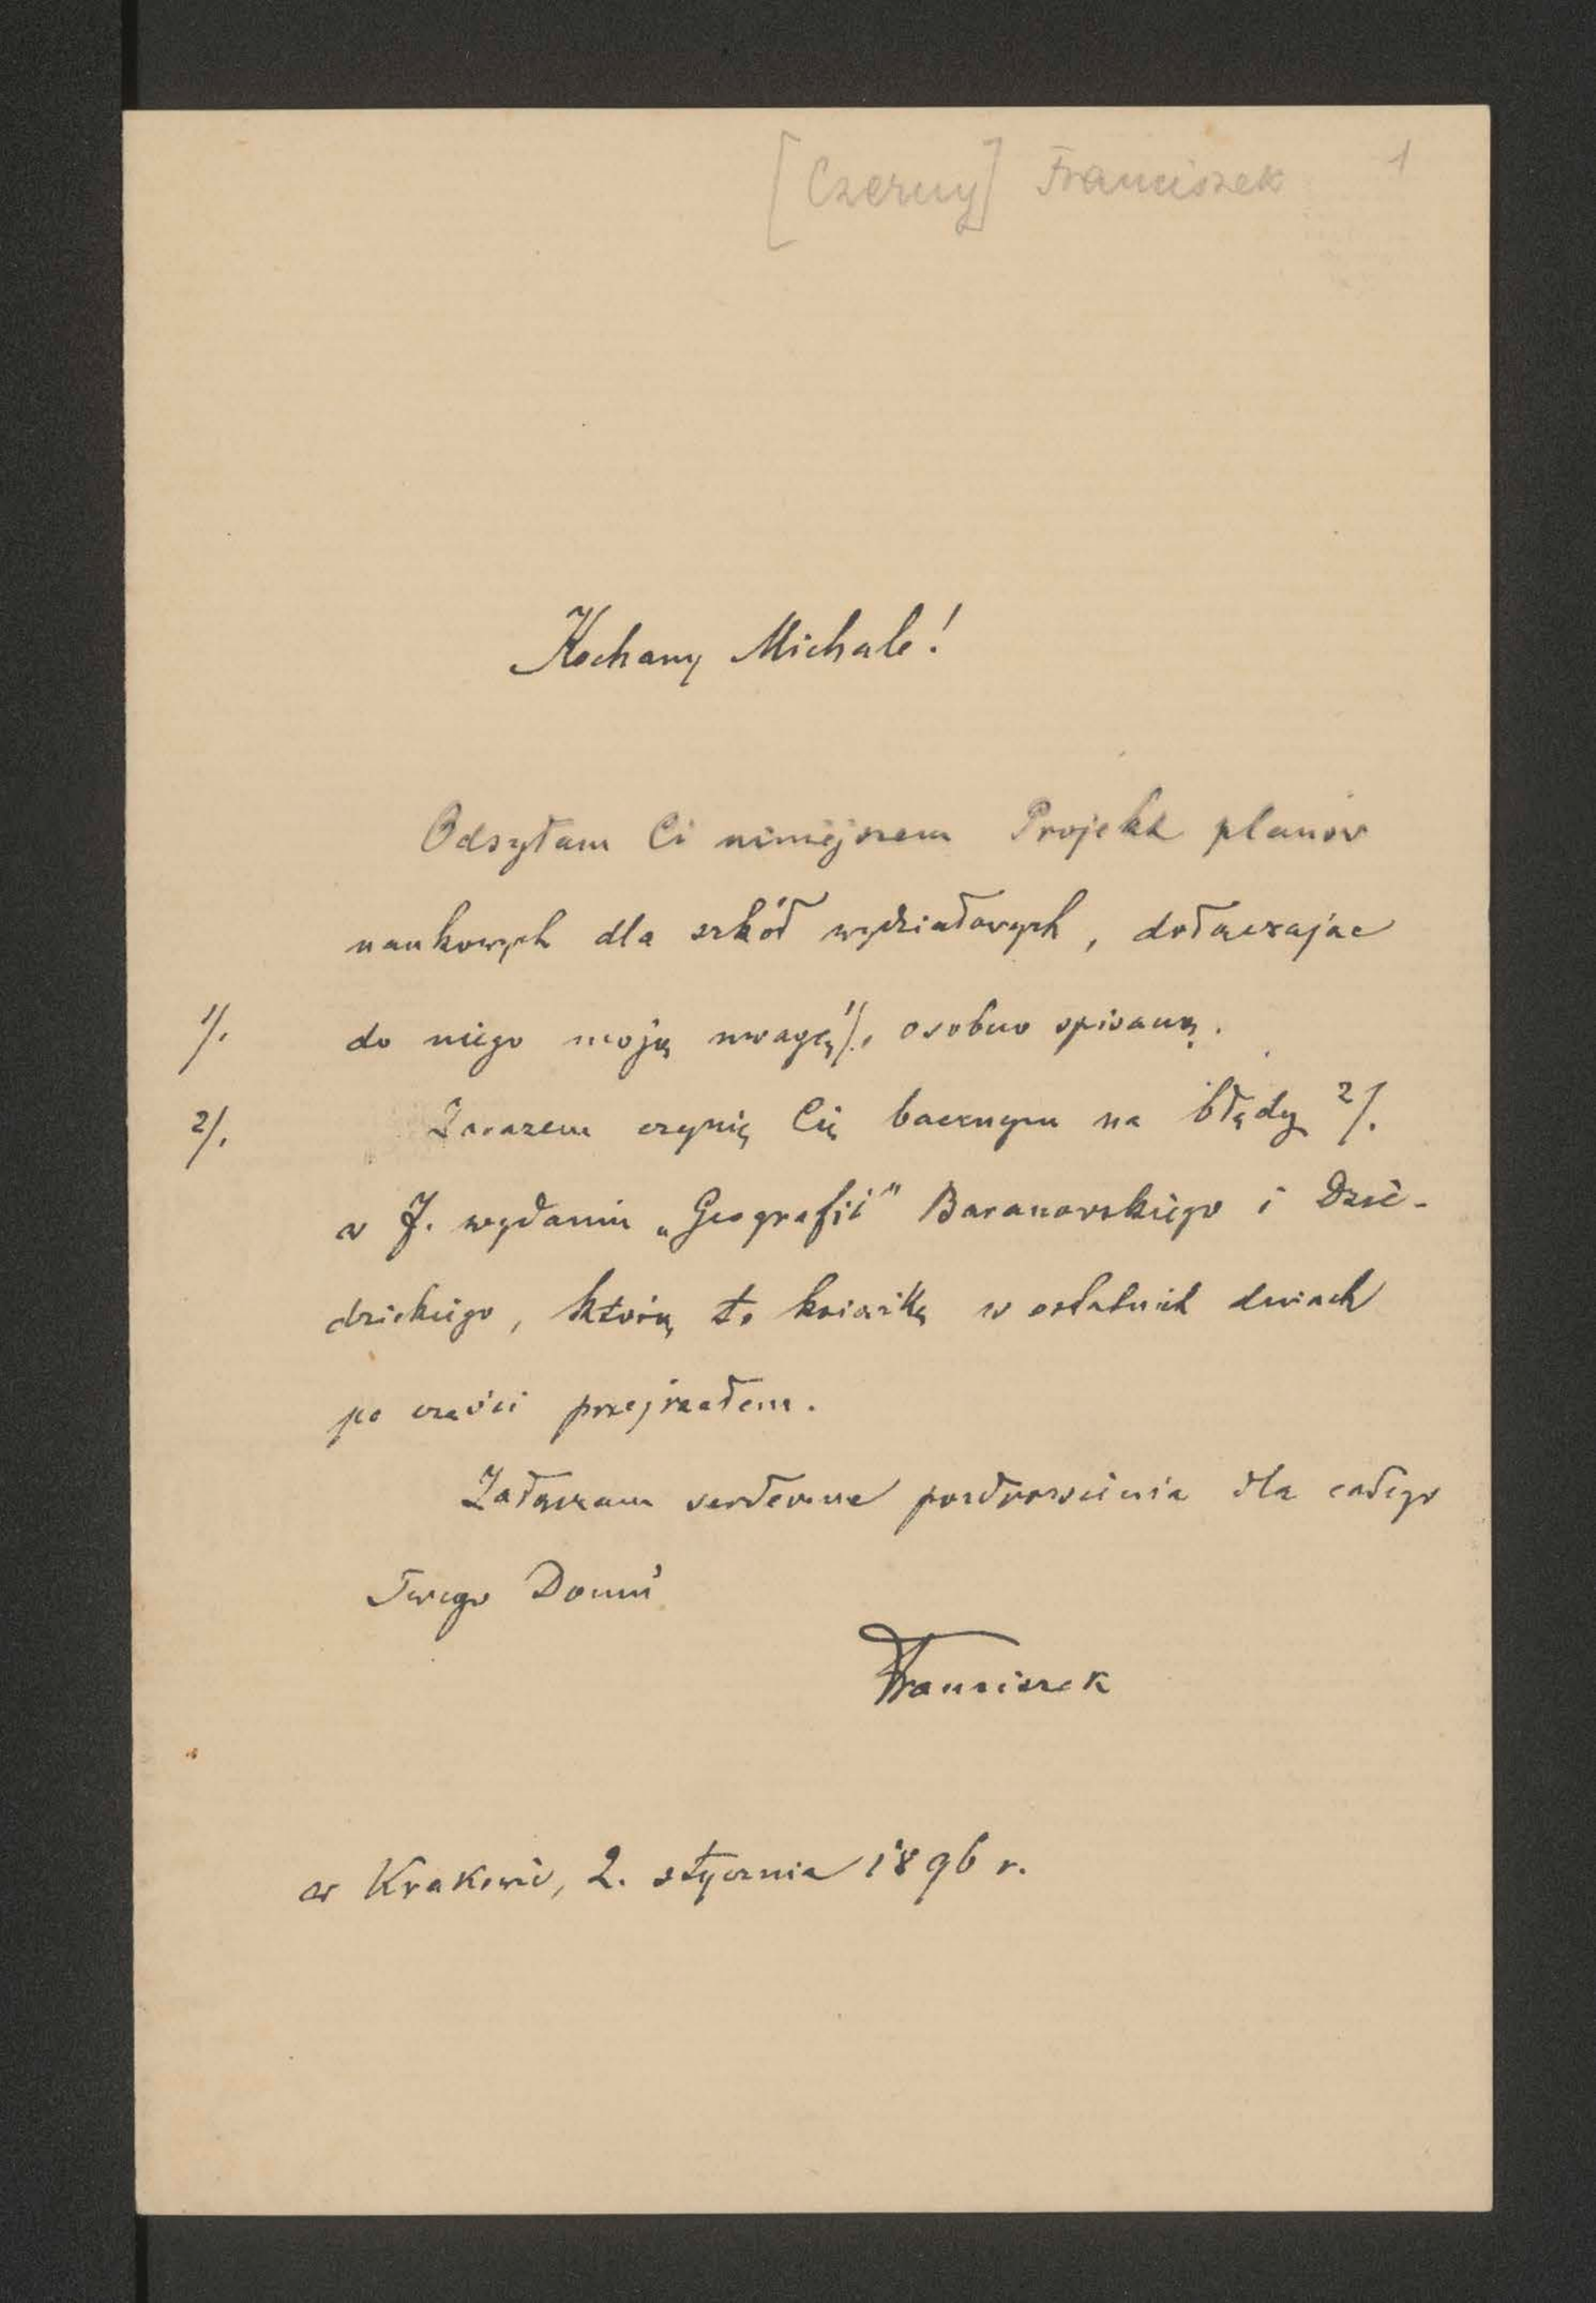 [Czerny] Franciszek 1
Kochany Michale!
Odsyłam Ci niniejszem Projekt planów
naukowych dla szkół wydziałowych, dołączając
1/. do niego moją uwagę 1/., osobno spisaną.
2/. Zarazem czynię Cię bacznym na błędy 2/.
w I. wydaniu „Geografii" Baranowskiego i Dzie-
dzickiego, którą to książkę w ostatnich dniach
po części przejrzałem.
Załączam serdeczne pozdrowienia dla całego
Twego Domu
Franciszek
w Krakowie, 2. stycznia 1896 r.